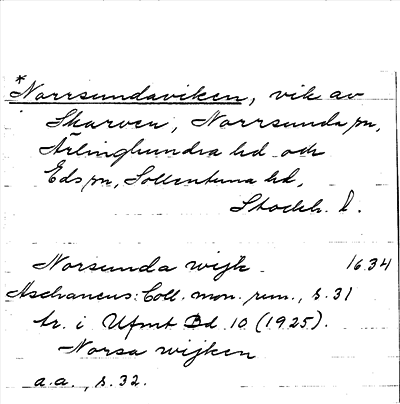 * Norrsundaviken, vik av
Skarven, Norrsunda sn,
Ärlinghundra hd och
Eds sn, Sollentuna hd,
Stockh. l.
Norsunda wijk 1634
Aschaneus: Coll. mon. run., s. 31
tr. i Ufmt Bd 10 (1925).
Norsa wijken
a.a., s. 32.